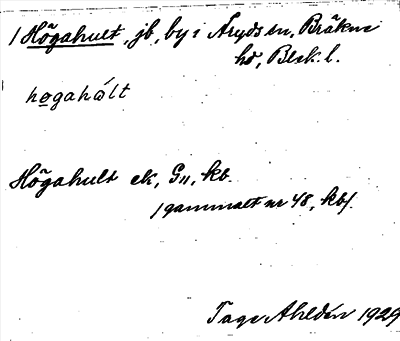 / Högahult, jb, by i Åryds sn, Bräkne
hd, Blek. l.
hogahålt
Högahult ek, G11, kb.
/ gammalt nr 48, kb/.
Tage Ahldén 1929